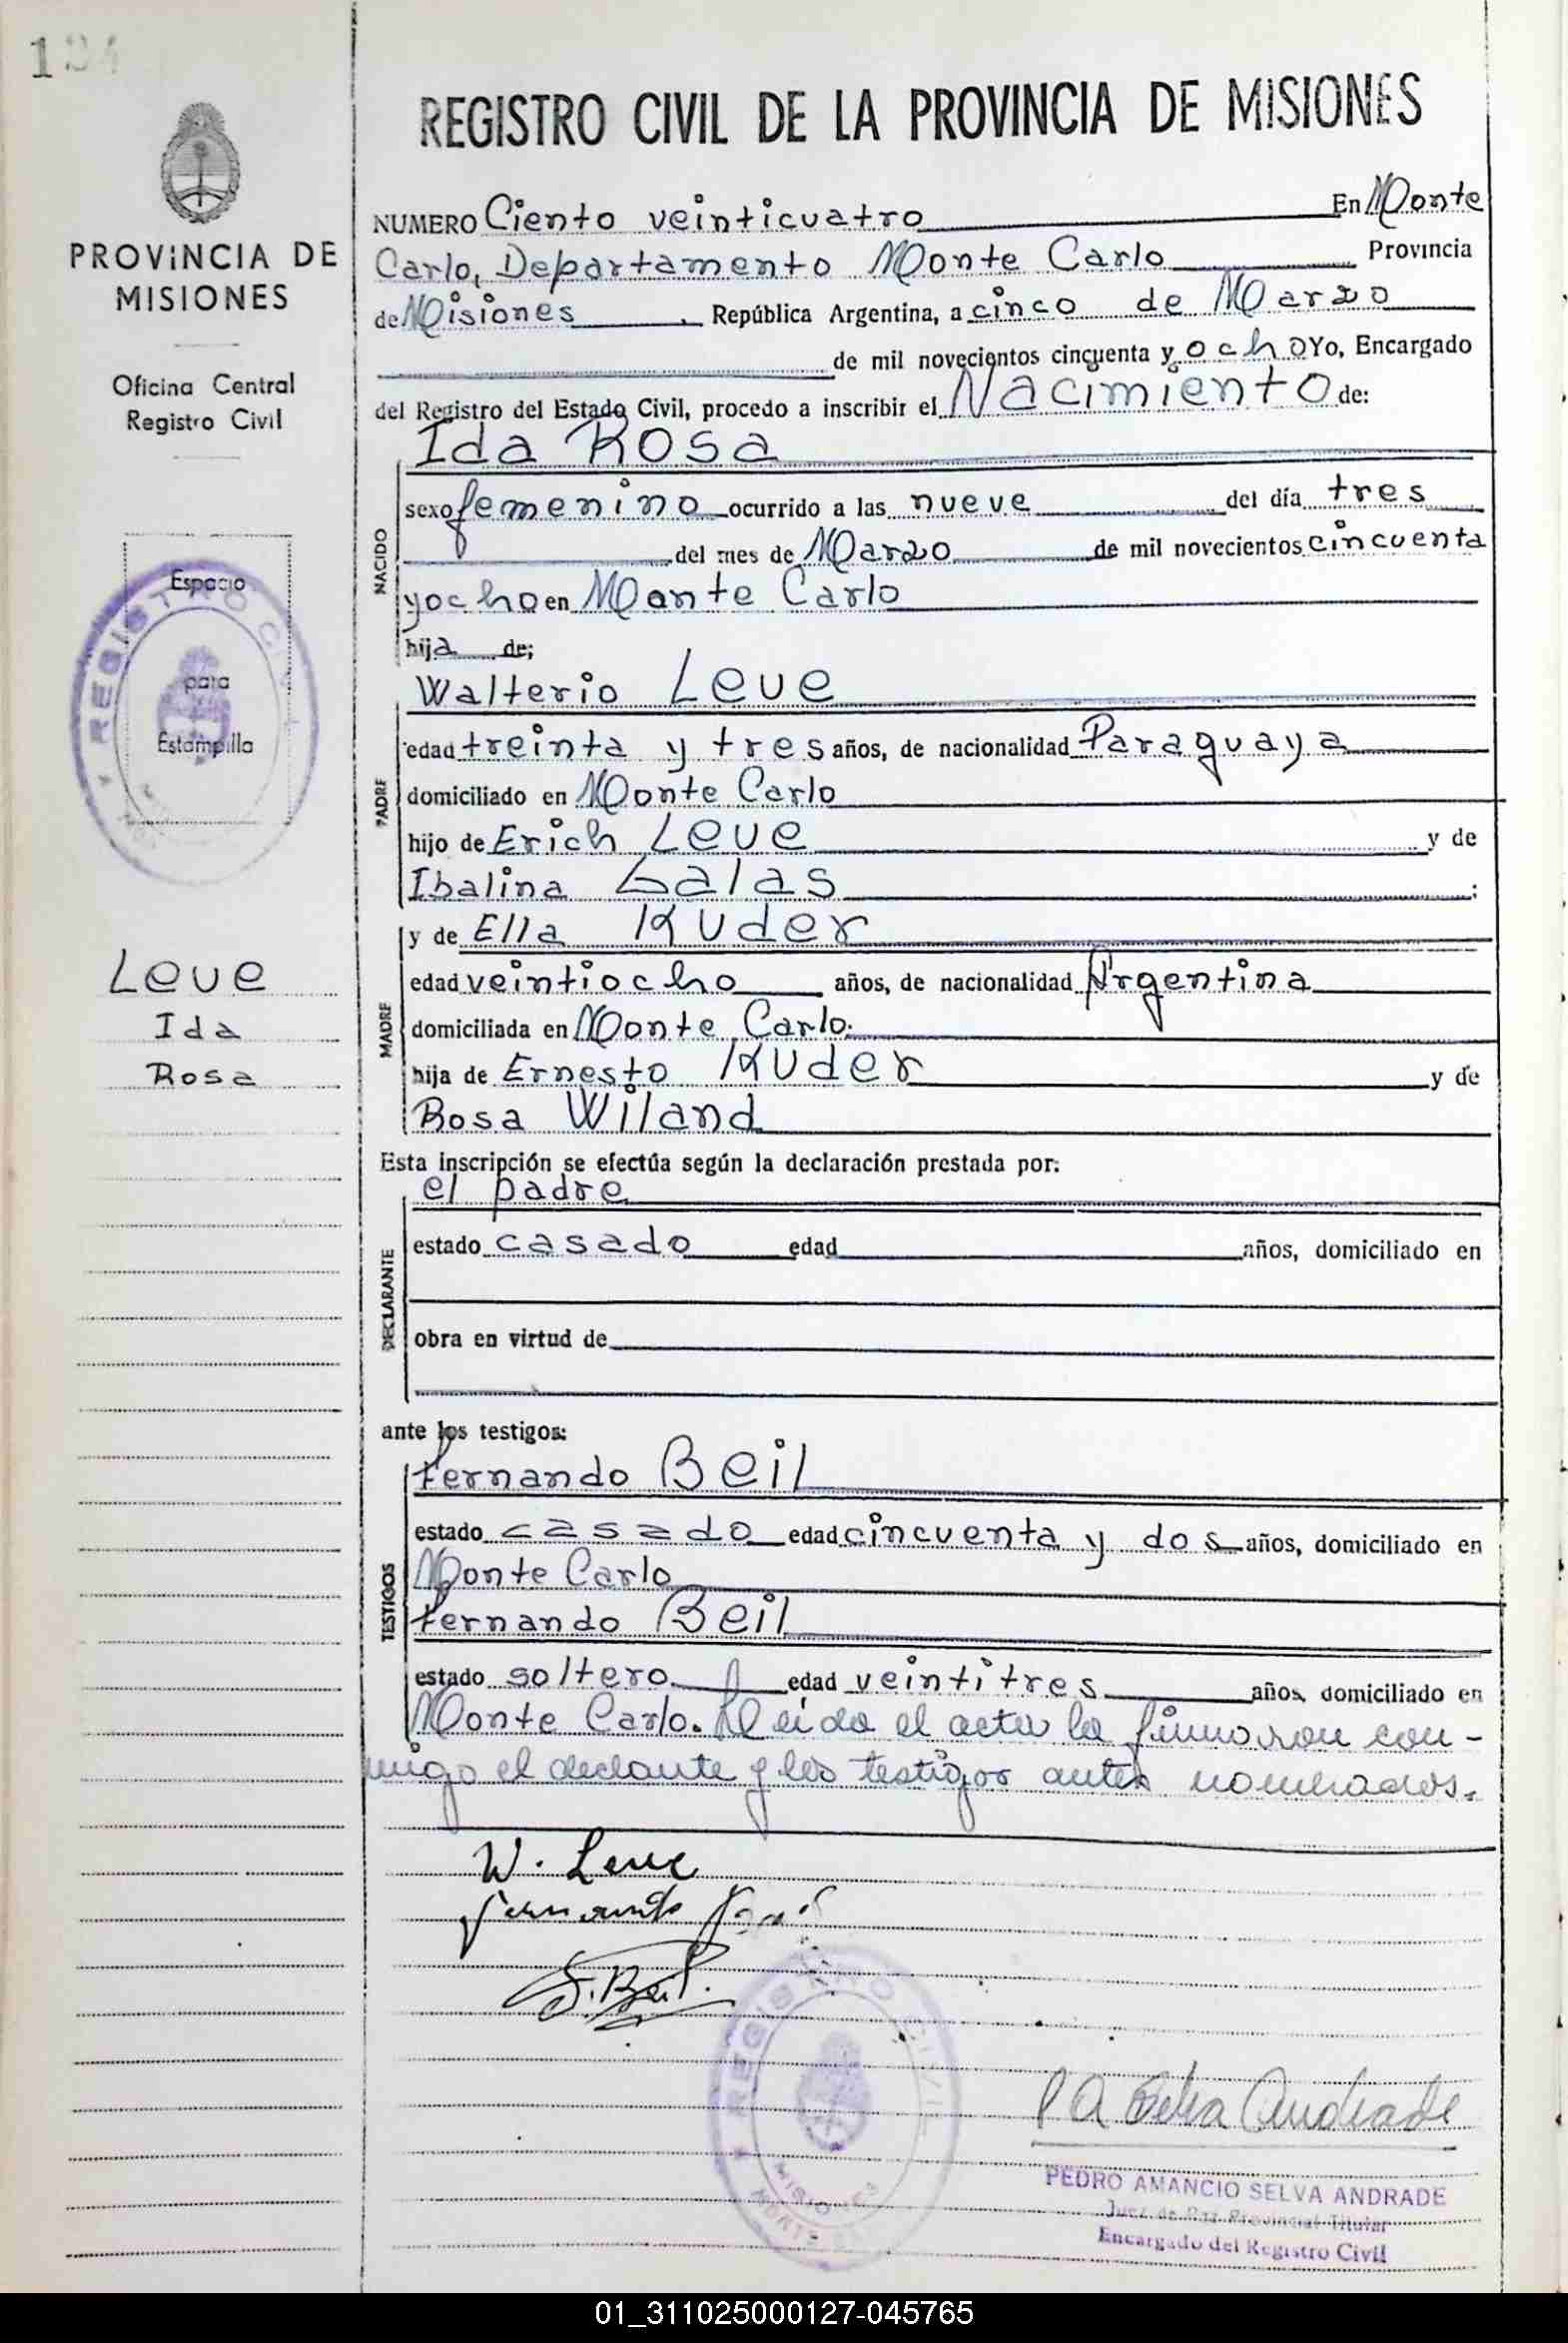 124
PROVINCIA DE
MISIONES
Oficina Central
Registro Civil
Espacio
para
Estampilla
REGISTRO CI
Leve
Ida
Rosa
REGISTRO CIVIL DE LA PROVINCIA DE MISIONES
NUMERO Ciento veinticuatro En Monte
Carlo, Departamento Monte Carlo Provincia
de Misiones, República Argentina, a cinco de Marzo
de mil novecientos cincuenta y ocho Yo, Encargado
del Registro del Estado Civil, procedo a inscribir el Nacimiento de:
Ida Rosa
NACIDO
sexo femenino ocurrido a las nueve del día tres
del mes de Marzo de mil novecientos cincuenta
y ocho en Monte Carlo
hija de;
Walterio Leve
PADRE
edad treinta y tres años, de nacionalidad Paraguaya
domiciliado en Monte Carlo
hijo de Erich Leve y de
Ibalina Galas;
y de Ella Kuder
MADRE
edad veintiocho años, de nacionalidad Argentina
domiciliada en Monte Carlo.
hija de Ernesto Kuder y de
Rosa Wiland
Esta inscripción se efectúa según la declaración prestada por:
el padre
DECLARANTE
estado casado edad años, domiciliado en
obra en virtud de
ante los testigos:
Fernando Beil
TESTIGOS
estado casado edad cincuenta y dos años, domiciliado en
Monte Carlo
Fernando Beil
estado soltero edad veintitres años, domiciliado en
Monte Carlo. Leída el acta la firmaron con-
migo el declante y los testigos antes nombrados.
W. Leve
Fernando Beil
F. Beil.
REGISTRO CIVIL
MISIONES
P A Selva Andrade
PEDRO AMANCIO SELVA ANDRADE
Juez de Paz Provincial Titular
Encargado del Registro Civil
01_311025000127-045765